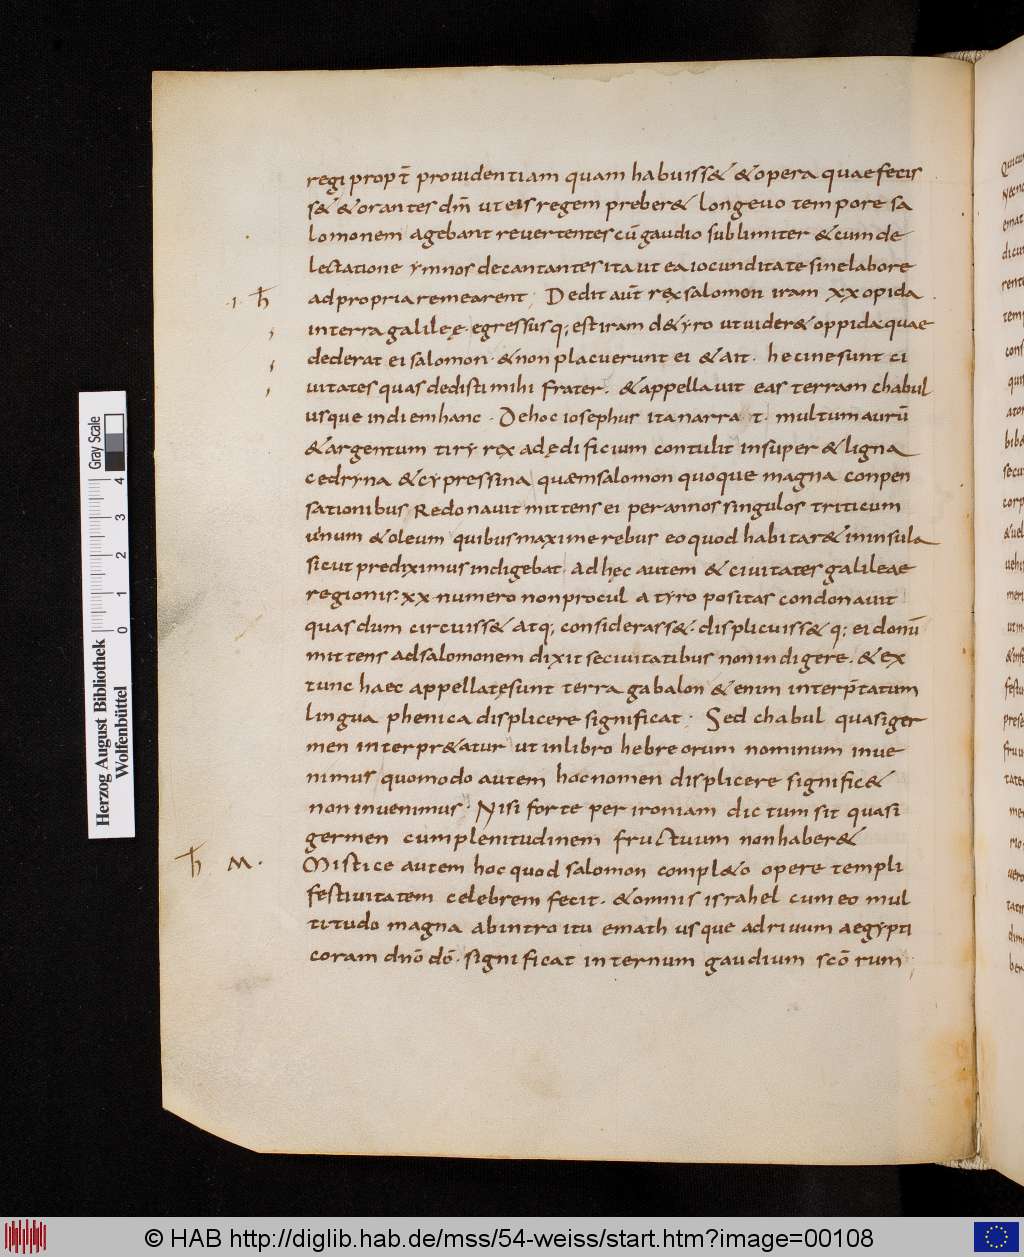 regi propt̄ providentiam quam habuiss& & opera quae fecis
s& & orantes dm̄ ut eis regem preber& longeuo tempore sa
lomonem agebant revertentes cū gaudio sublimiter & cum de
lectatione ymnos decantantes ita ut ea iocunditate sine labore
·I· ħ ad propria remearent; Dedit aut̄ rex salomon iram xx opida
in terra galileę· egressusq; est iram d& yro ut uider& oppida quae
dederat ei salomon· & non placuerunt ei & ait· hecine sunt ci
uitates quas dedisti mihi frater· & appellauit eas terram chabul
usque in diem hanc· De hoc iosephus ita narrat· multum aurū
& argentum tiry rex ad ędificium contulit insuper & ligna
cedryna & cypressina quaem salomon quoque magna conpen
sationibus Redonauit mittens ei per annos singulos triticum
uinum & oleum quibus maxime rebus eo quod habitar& in insula
sicut prediximus indigebat· Ad hęc autem & ciuitates galileae
regionis· xx· numero non procul a tyro positas condonauit
quas dum circuiss& atq; considerass&· displicuiss&q; ei donū
mittens ad salomonem dixit se ciuitatibus non indigere· & ex
tunc haec appellatę sunt terra gabalon & enim interp̄tatum
lingua phenica displicere significat· Sed chabul quasi ger
men interpr&atur ut in libro hebreorum nominum inue
nimus quomodo autem hoc nomen displicere signific&
non inuenimus· Nisi forte per ironiam dictum sit quasi
germen cum plenitudinem fructuum non haber&
ħ M· Mistice autem hoc quod salomon compl&o opere templi
festiuitatem celebrem fecit· & omnis israhel cum eo mul
titudo magna ab introitu emath usque ad riuum aegypti
coram dn̄o dō· significat internum gaudium scōrum
Herzog August Bibliothek
Wolfenbüttel
0 1 2 3 4
Gray Scale
© HAB http://diglib.hab.de/mss/54-weiss/start.htm?image=00108